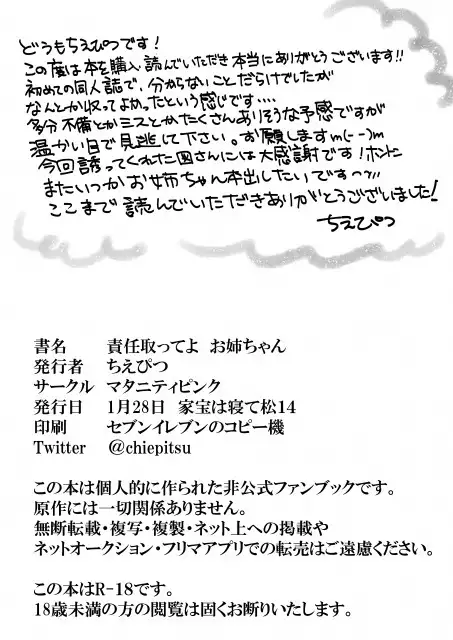 どうもちえぴつです!
この度は本を購入、読んでいただき本当にありがとうございます!!
初めての同人誌で、分からないことだらけでしたが
なんとか収ってよかったという感じです....
多分不備とかミスとかたくさんありそうな予感ですが
温かい目で見逃して下さい。お願いしますm(--)m
今回誘ってくれた国さんには大感謝です!ホントに
またいつかお姉ちゃん本出したいですのっっ
ここまで読んでいただきありがとうございました!
ちえぴつ
書名 責任取ってよ お姉ちゃん
発行者 ちえぴつ
サークル マタニティピンク
発行日 1月28日 家宝は寝て松14
印刷 セブンイレブンのコピー機
Twitter @chiepitsu
この本は個人的に作られた非公式ファンブックです。
原作には一切関係ありません。
無断転載・複写・複製・ネット上への掲載や
ネットオークション・フリマアプリでの転売はご遠慮ください。
この本はR-18です。
18歳未満の方の閲覧は固くお断りいたします。